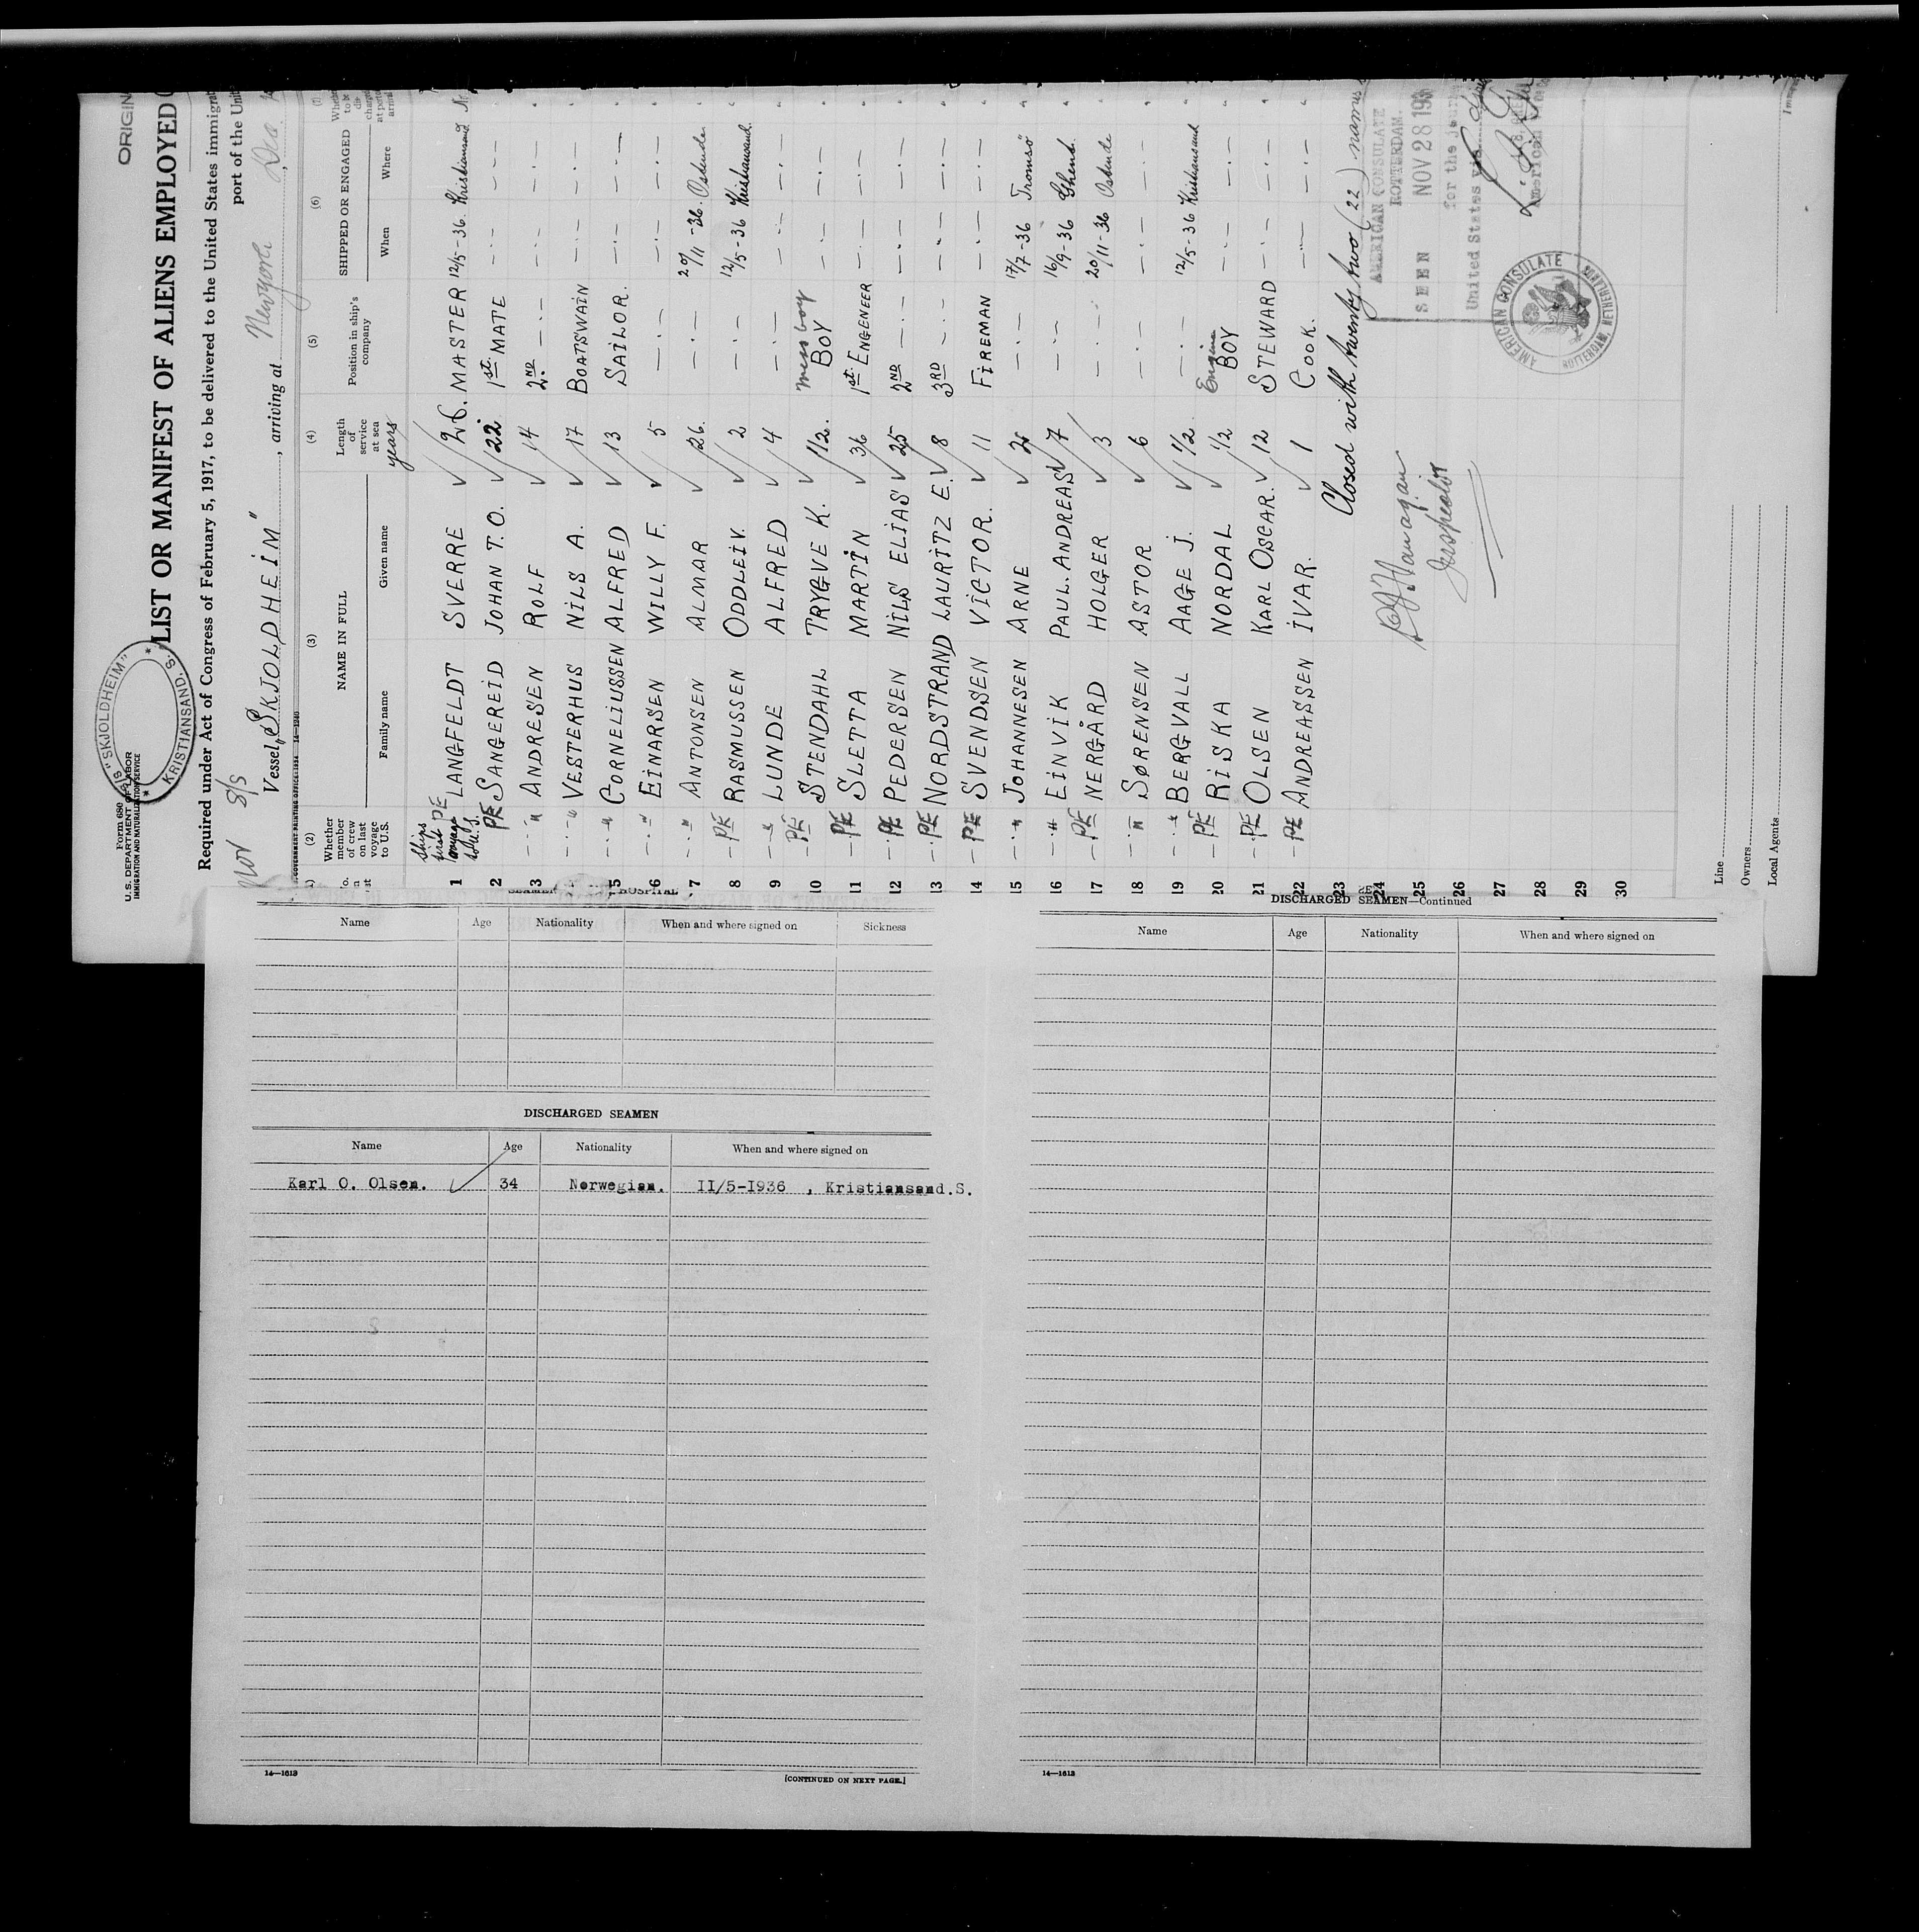 ORIGIN
S/S "SKJOLDHEIM"
KRISTIANSAND. S.
Form 680
U. S. DEPARTMENT OF LABOR
IMMIGRATION AND NATURALIZATION SERVICE
LIST OR MANIFEST OF ALIENS EMPLOYED
Required under Act of Congress of February 5, 1917, to be delivered to the United States immigrat
port of the Unit
Nov S/S
Vessel "SKJOLDHEiM", arriving at Newyork, Dec.
(2) (3) (4) (5) (6)
Whether member of crew on last voyage to U.S. NAME IN FULL Length of service at sea Position in ship's company SHIPPED OR ENGAGED
Family name Given name years When Where
1 Ships first voyage to U.S. PE LANGFELDT SVERRE 26. MASTER 12/5-36. Kristiansand
2 PE SANGEREiD JOHAN T. O. 22 1st. MATE —·— —·—
3 —·— " ANDRESEN ROLF 14 2ND —·— —·— —·—
4 —·— " VESTERHUS NiLS A. 17 BOATSWAiN —·— —·—
5 —·— " CORNELiUSSEN ALFRED 13 SAiLOR. —·— —·—
6 —·— " EiNARSEN WILLY F. 5 —·— —·— —·—
7 —·— " ANTONSEN ALMAR 26. —·— 20/11-36. Ostende.
8 —PE RASMUSSEN ODDLEiV. 2 —·— 12/5-36 Kristiansand.
9 —·— " LUNDE ALFRED 4 —·— —·— —·—
10 —PE STENDAHL TRYGVE K. 1/2. mess boy BOY —·— —·—
11 —PE SLETTA MARTiN 36 1st. ENGENEER —·— —·—
12 —PE PEDERSEN NiLS ELiAS 25 2ND —·— —·— —·—
13 —PE NORDSTRAND LAURiTZ E. 8 3RD —·— —·— —·—
14 —PE SVENDSEN ViCTOR. 11 FiREMAN —·— —·—
15 —·— " JOHANNESEN ARNE —·— 17/7-36 Tromsö
16 —·— " EiNViK PAUL. ANDREAS 7 —·— 16/9-36 Ghent.
17 —PE NERGÅRD HOLGER 3 —·— 20/11-36 Ostende
18 —·— " SØRENSEN ASTOR 6 —·— —·— —·—
19 —·— " BERGVALL AAGE J. 1/2 —·— 12/5-36 Kristiansand
20 —PE RiSKA NORDAL 1/2 Engine BOY —·— —·—
21 —PE OLSEN KARL OSCAR. 12 STEWARD —·— —·—
22 —PE ANDREASSEN iVAR. 1 COOK. —·— —·—
23
24
25
26
27
28
29
30
Closed with twenty two (22) names
Inspector
AMERICAN CONSULATE
ROTTERDAM.
SEEN NOV 28 193
for the
United States
American
AMERICAN CONSULATE
ROTTERDAM, NETHERLANDS
Line
Owners
Local Agents
Name Age Nationality When and where signed on Sickness
DISCHARGED SEAMEN
Name Age Nationality When and where signed on
Karl O. Olsen. 34 Norwegian. II/5-I936 , Kristiansand.S.
14—1613
[CONTINUED ON NEXT PAGE.]
DISCHARGED SEAMEN—Continued
Name Age Nationality When and where signed on
14—1613